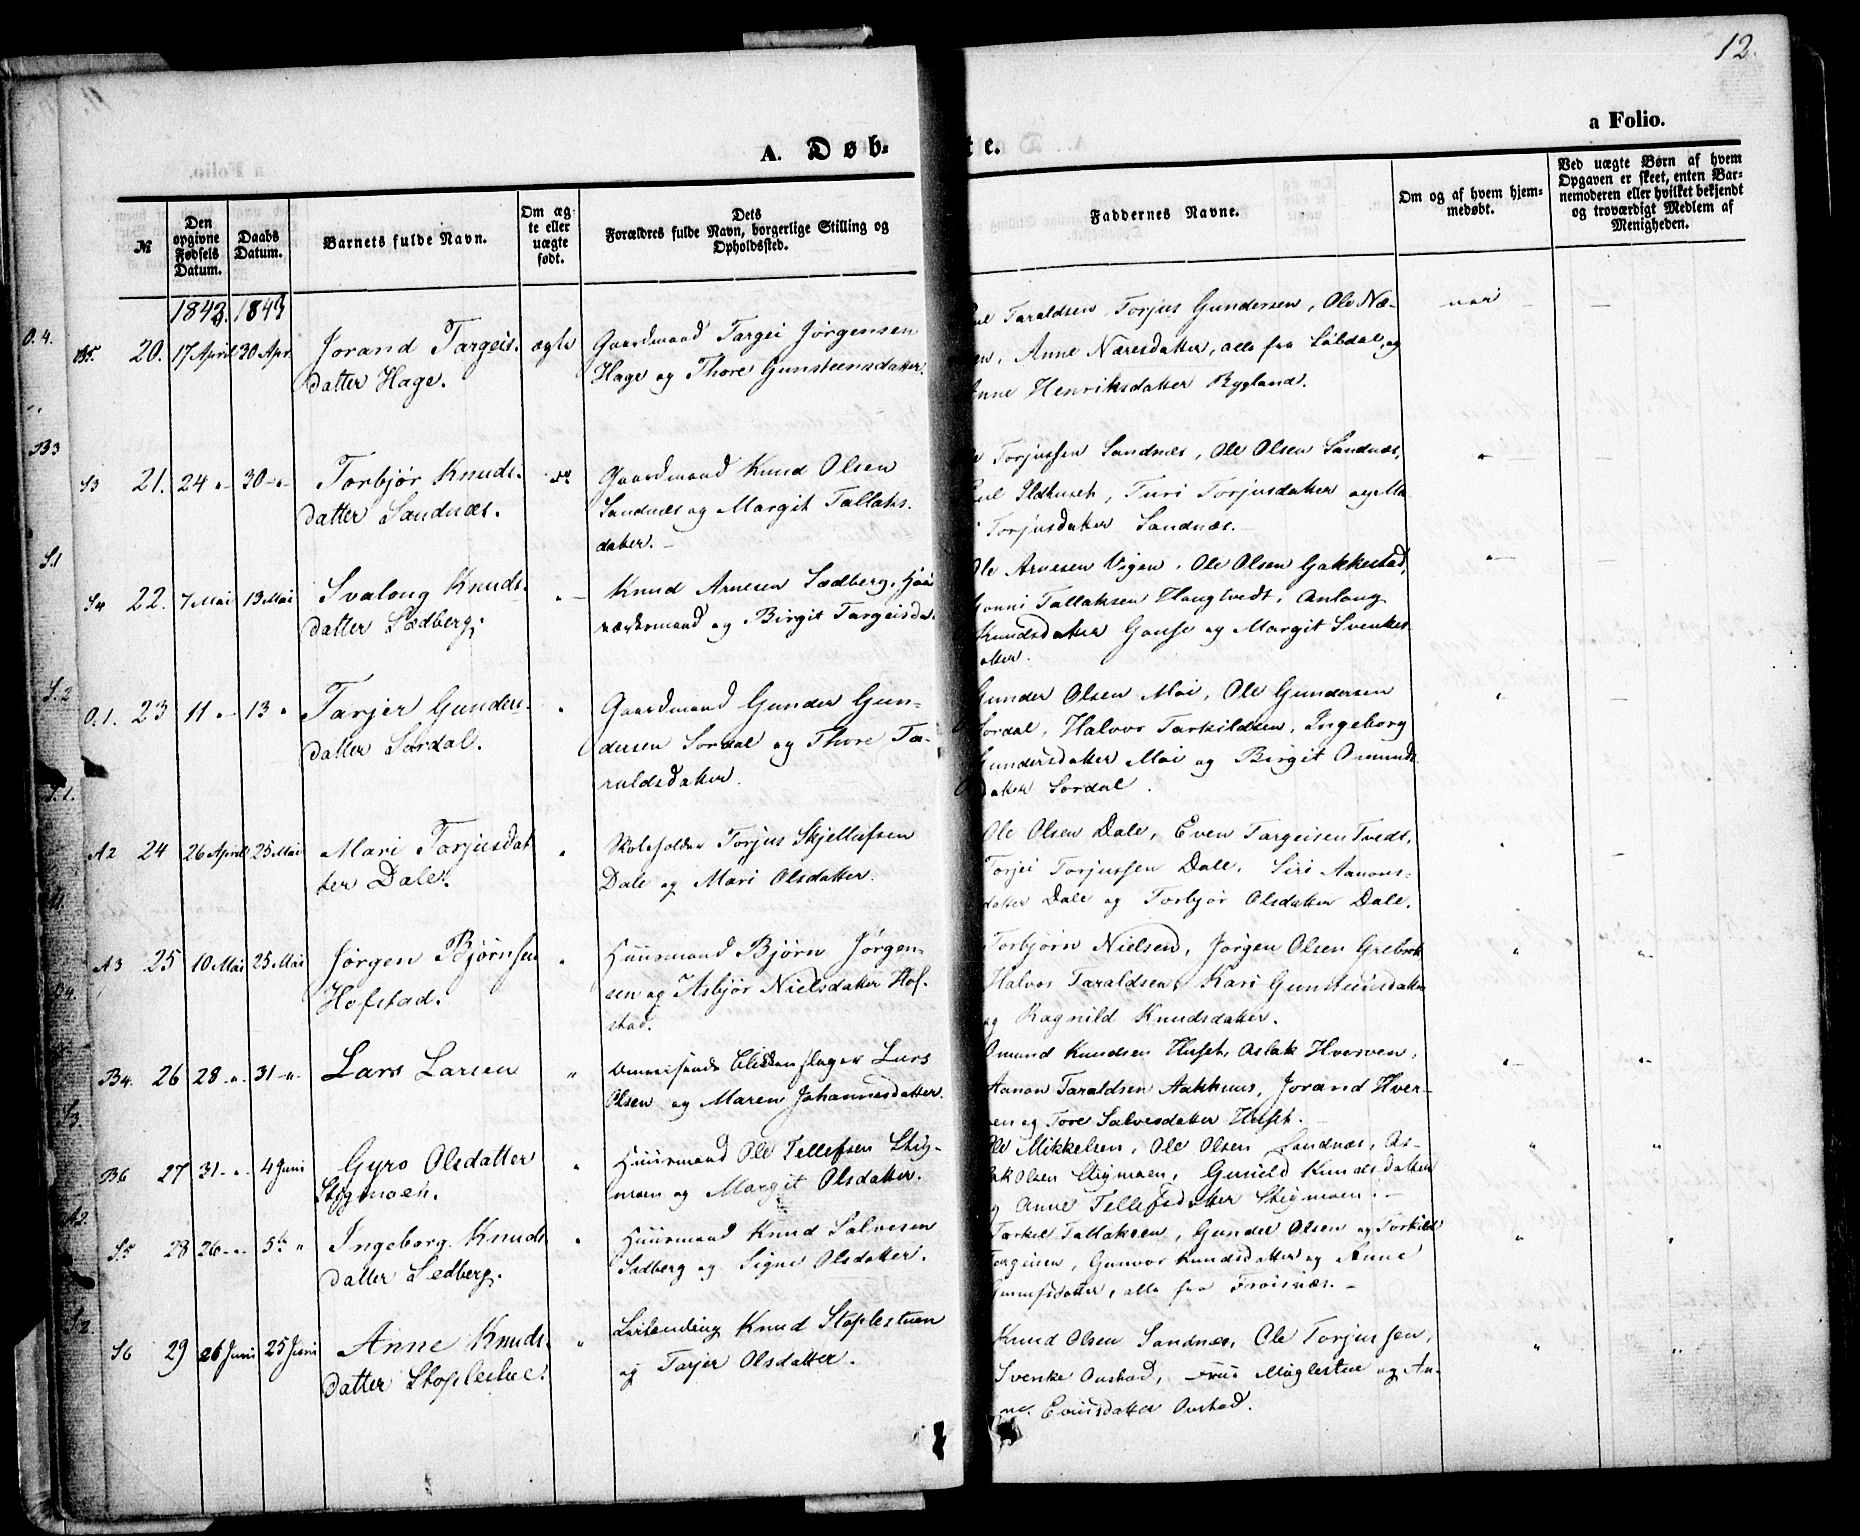 12.
a Folio.
A. Døb-
te.
№
Den opgivne Fødsels Datum.
Daabs Datum.
Barnets fulde Navn.
Om ægte eller uægte født.
Dets Forældres fulde Navn, borgerlige Stilling og Opholdssted.
Faddernes Navne.
Om og af hvem hjemmedøbt.
Ved uægte Børn af hvem Opgaven er skeet, enten Barnemoderen eller hvilket bekjendt og troværdigt Medlem af Menigheden.
1843. 1843
B5. 20. 17 April 30 Apr. Jorand Targeis- ægte Gaardmand Targei Jörgensen
datter Hage. Hage og Thore Gunsteensdatter.
Taraldsen, Torjus Gundersen, Ole Næ-
Anne Næresdatter, alle fra Löldal, og
Anne Henriksdatter Rygland.
S3 21. 24 " 30 " Torbjör Knuds- Gaardmand Knud Olsen
datter Sandnæs. Sandnæs og Margit Tallaks-
datter.
Torjussen Sandnæs, Ole Olsen Sandnæs,
Ildhuset, Turi Torjusdatter og Ma
Torjusdatter Sandnæs.
S4 22. 7 Mai 13 Mai Svalong Knuds- " Knud Arnesen Sædberg,
datter Sædberg. og Birgit Targeisda.
Ole Arnesen Vigen, Ole Olsen Gakkestad,
Gonni Tallaksen Haugtvedt, Anlaug
Knudsdatter Gouse og Margit Svenkes-
atter.
O.1. 23 11 " 13 " Tarjer Gunders- " Gaardmand Gunder Gun-
datter Sordal. dersen Sordal og Thore Ta-
raldsdatter.
Gunder Olsen Moi, Ole Gundersen
Sordal, Halvor Tarkildsen, Ingeborg
Gundersdatter Moi og Birgit Omunds
datter Sordal.
A2 24 26 April 25 Mai Mari Torjusdat " Skoleholder Torjus Skjellufsen
ter Dale. Dale og Mari Olsdatter.
Ole Olsen Dale, Even Targeisen Tvedt,
Torjei Torjussen Dale, Siri Aanons-
datter Dale og Torbjör Olsdatter Dale.
A3 25 10 Mai 25 Mai Jörgen Björnsen " Huusmand Björn Jörgen-
Hofstad. sen og Asbjör Nielsdatter Hof-
stad.
Torbjörn Nielsen, Jörgen Olsen Grebrok
Halvor Taraldsen, Kari Gunsteensdatter
og Ragnild Knudsdatter.
B4. 26 28 " 31 " Lars Larsen " Lars
Olsen og Maren Johannesdatter.
Omund Knudsen Huset, Aslak Hverven,
Aanon Taraldsen Aakhuus, Jorand Hver-
ven og Tore Salvesdatter Huset.
B6 27 31 " 4 Juni Gyro Olsdatter " Huusmand Ole Tellefsen Stig-
Stigmoen. moen og Margit Olsdatter.
Ole Mikkelsen, Ole Olsen Sandnæs, As-
lak Olsen Stigmoen, Gunild Knudsdatter
og Anne Tellefsdatter Stigmoen.
S5 28 26 " 5te " Ingeborg Knuds " Huusmand Knud Salvesen
datter Sedberg. Sædberg og Signe Olsdatter.
Tarkel Tallaksen, Gunder Olsen og Torkild
Torgeisen, Gunvor Knudsdatter og Anne
Gunufsdatter, alle fra Froisnæs.
S6 29 26 Juni 25 Juni Anne Knuds- " Leilending Knud Stoplestuen
datter Stoplestue. og Tarjer Olsdatter.
Knud Olsen Sandnæs, Ole Torjussen,
Svenke Austad, Möglestue og An-
ne Evensdatter Austad.